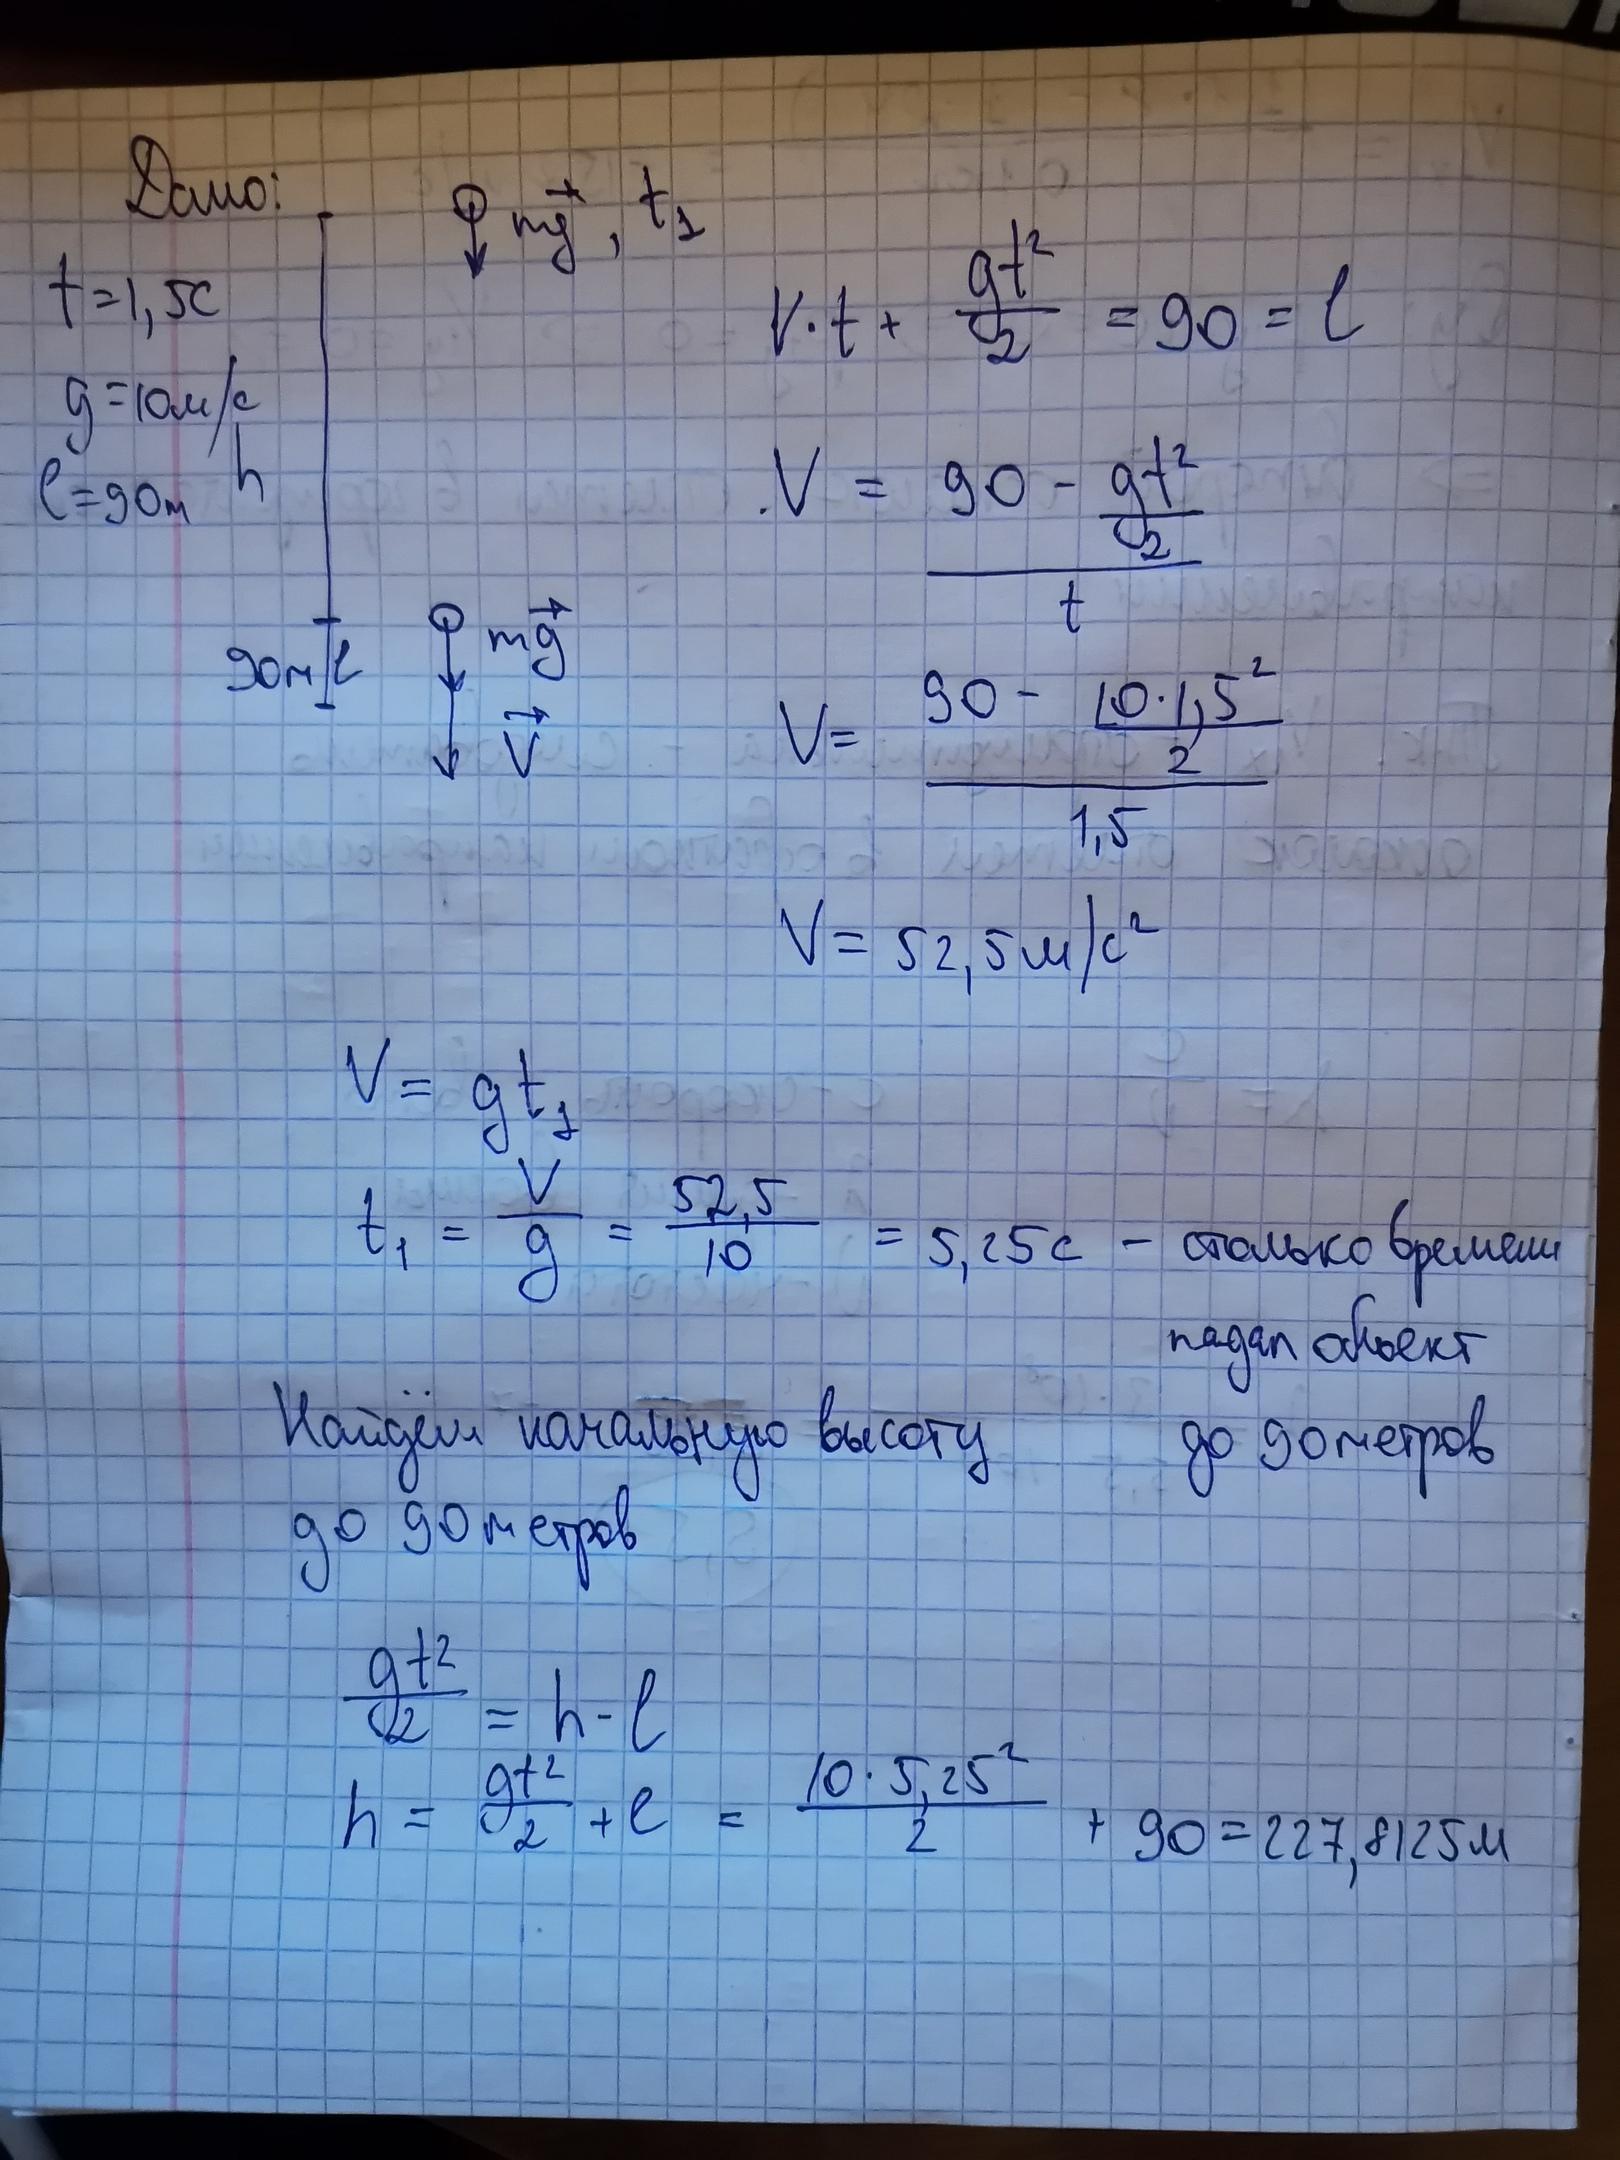 Дано:
t=1,5с
g=10м/с
l=90м
h
mg, t₁
90м l
mg
V
V·t + gt²/2 = 90 = l
V = (90 - gt²/2)/t
V = (90 - 10·1,5²/2)/1,5
V = 52,5м/с²
V = gt₁
t₁ = V/g = 52,5/10 = 5,25с – столько времени
падал объект
до 90 метров
Найдём начальную высоту
до 90 метров
gt²/2 = h - l
h = gt²/2 + l = 10·5,25²/2 + 90 = 227,8125м